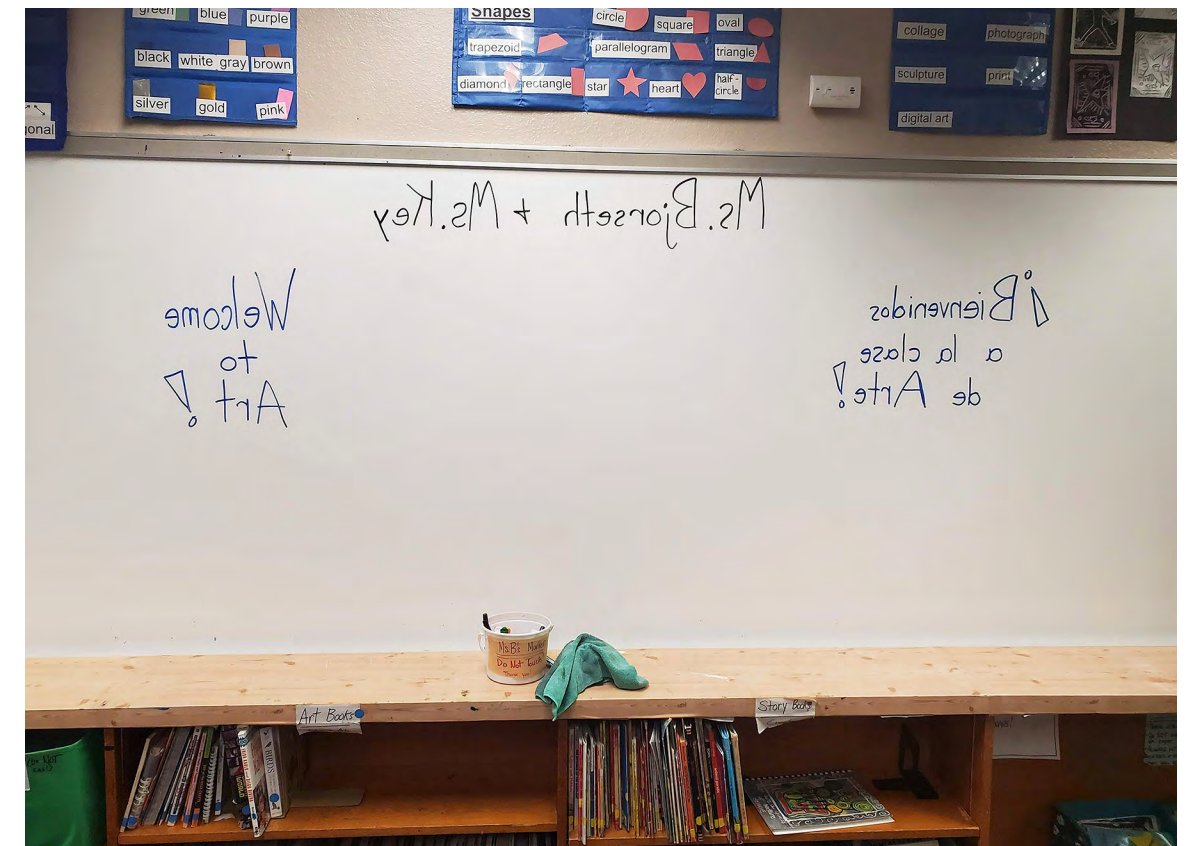 green blue purple
black white gray brown
silver gold pink
onal
Shapes
circle square oval
trapezoid parallelogram triangle
diamond rectangle star heart half-
circle
collage photograph
sculpture print
digital art
Ms. Bjorseth + Ms. Key
Welcome
to
Art!
¡Bienvenidos
a la clase
de Arte!
Ms B's
Do Not Touch
Thank you
Art Books
Story Books
BIRDS